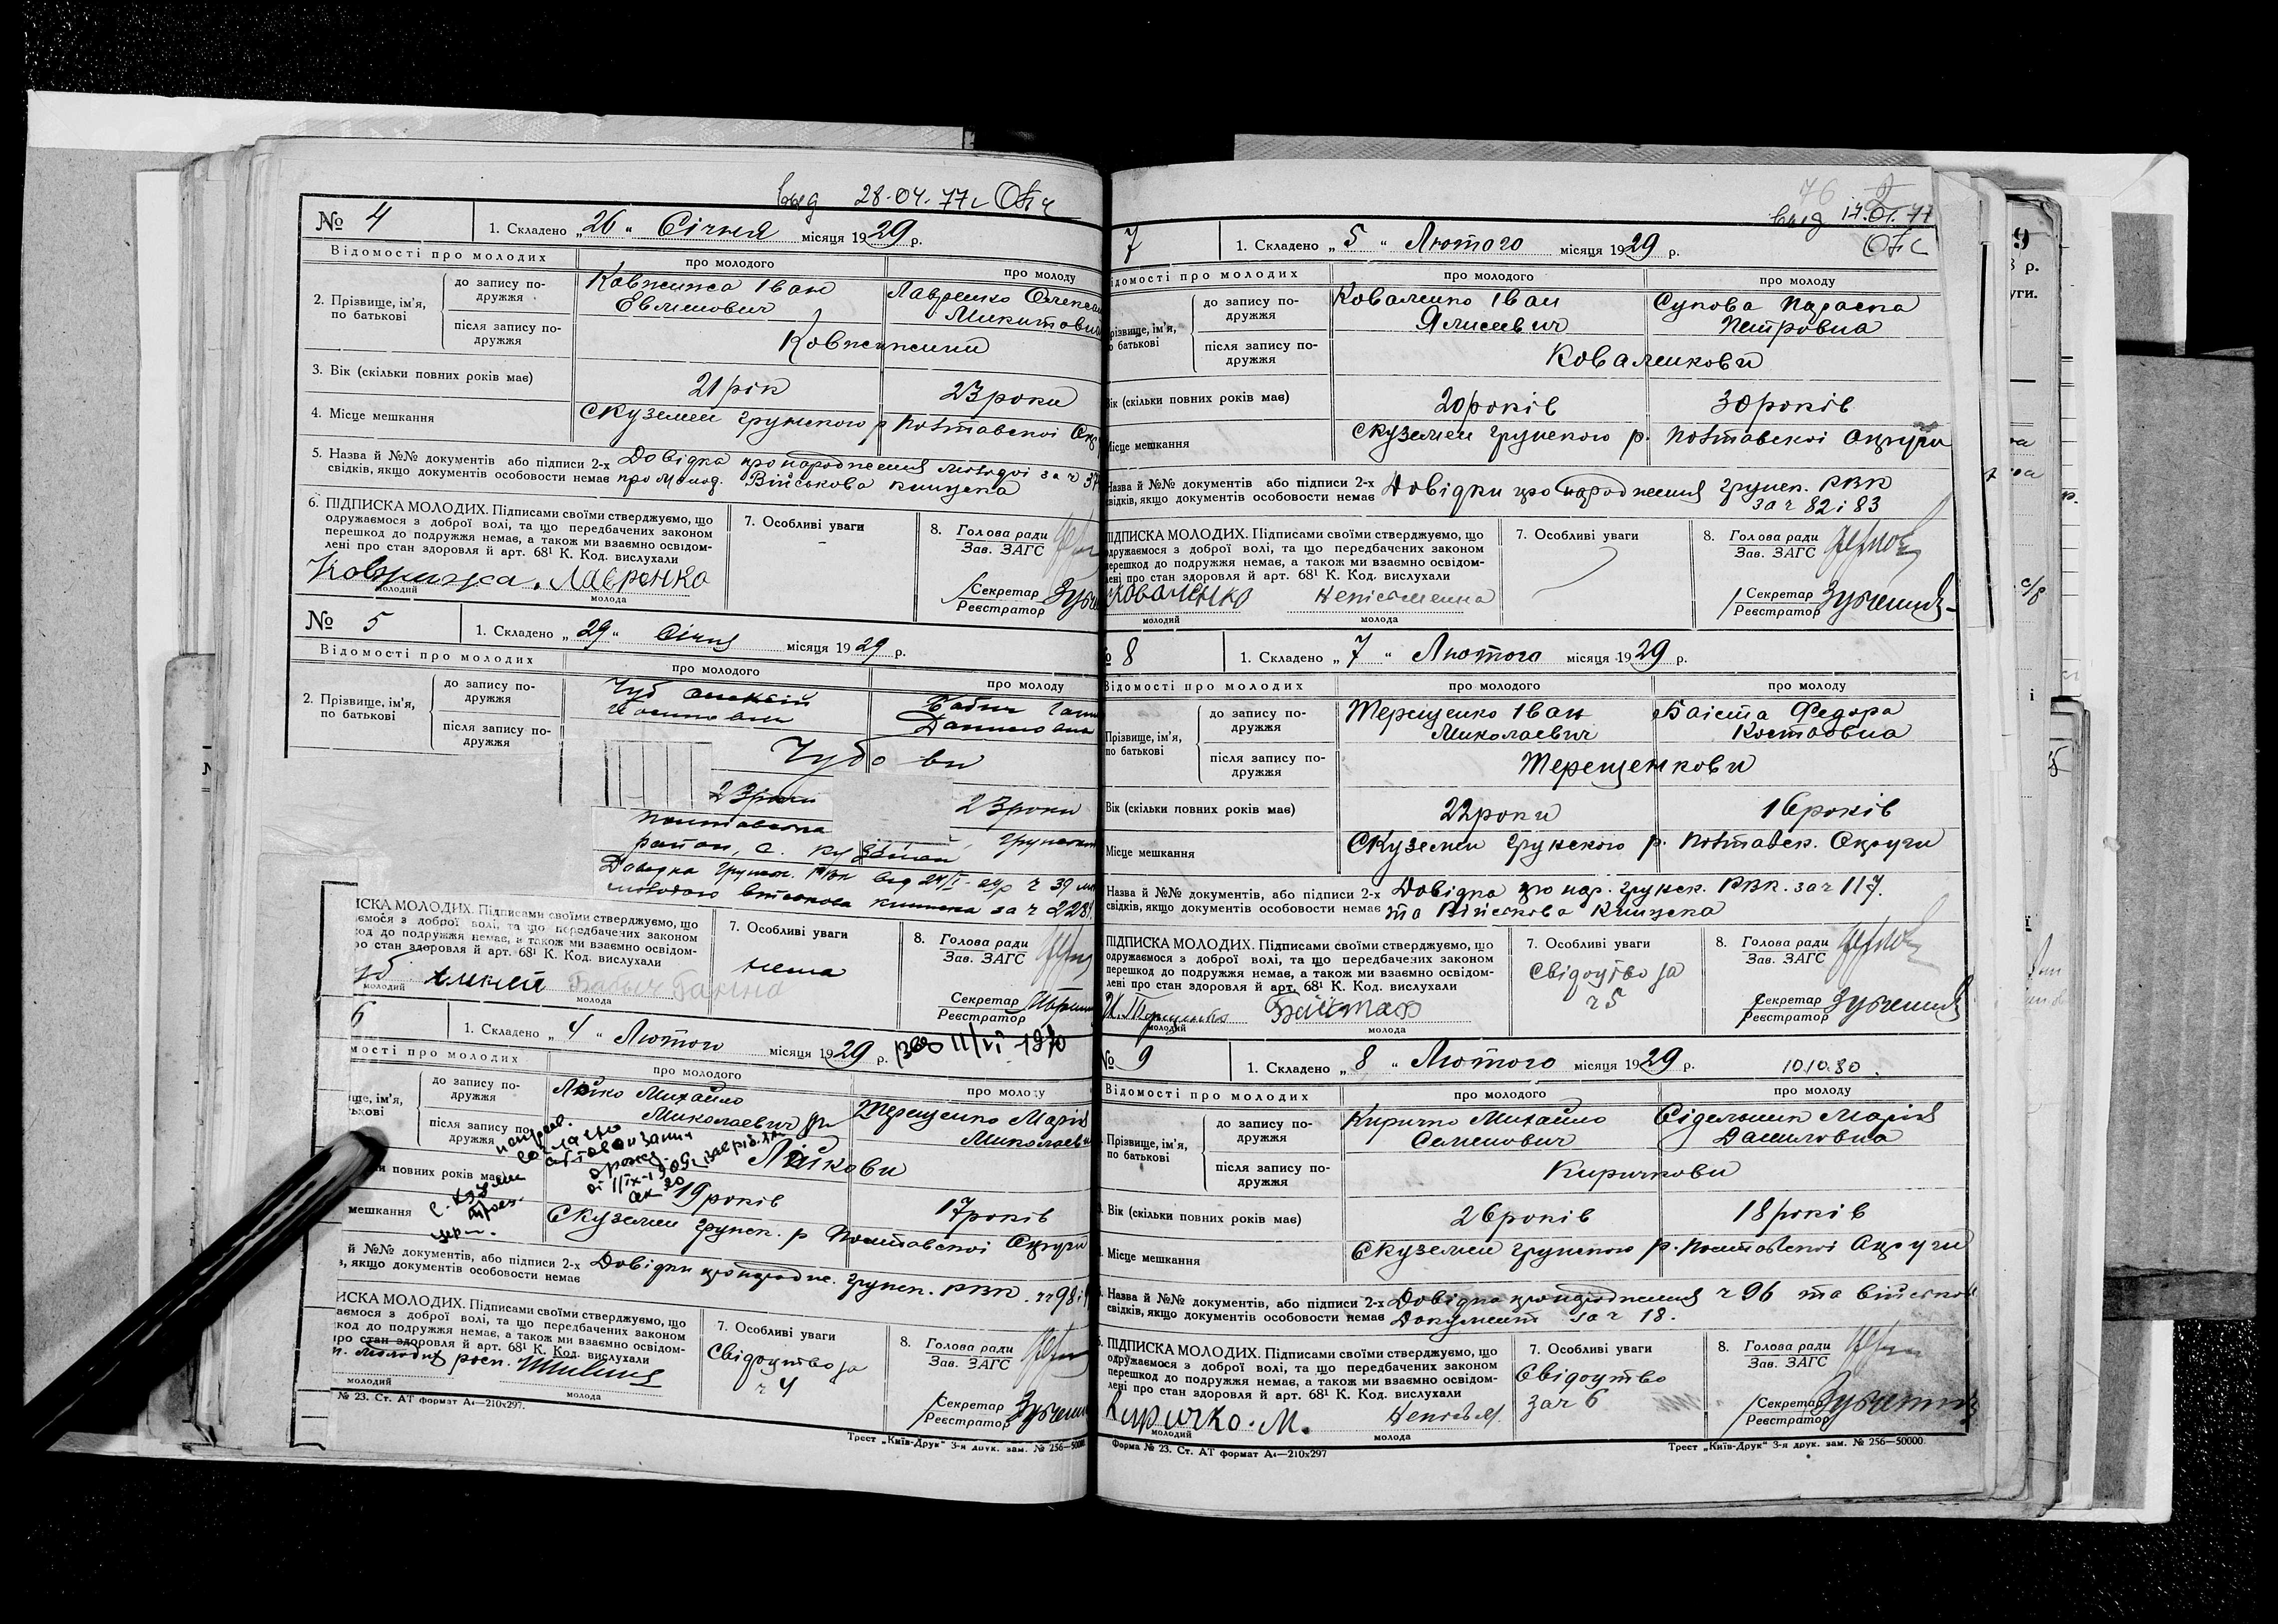 выд 28.04.77г
№ 4
1. Складено „26“ Січня місяця 1929 р.
Відомості про молодих
про молодого
про молоду
2. Прізвище, ім'я, по батькові
до запису подружжя
Ковжижа Іван
Лавренко
Микитовн
після запису подружжя
Ковжижини
3. Вік (скільки повних років має)
21 рік
23 роки
4. Місце мешкання
С Куземен Грунського р Полтавскої Окр
5. Назва й №№ документів або підписи 2-х
Довідка про народження молодої за ч 37
свідків, якщо документів особовости немає
про молод. Військова книжка
6. ПІДПИСКА МОЛОДИХ. Підписами своїми стверджуємо, що
одружаємося з доброї волі, та що передбачених законом
перешкод до подружжя немає, а також ми взаємно освідом-
лені про стан здоров'я й арт. 68¹ К. Код. вислухали
7. Особливі уваги
8. Голова ради
Зав. ЗАГС
Ковжижа. Лавренко
молодий
молода
Секретар
Реєстратор
№ 5
1. Складено „29“ Січня місяця 1929 р.
Відомості про молодих
про молодого
про молоду
2. Прізвище, ім'я, по батькові
до запису подружжя
Чуб Алексій
Бабич Ганн
Даниловна
після запису подружжя
Чубови
23 роки
23 роки
Полтавська
район, с. Куземен Грунськ
Довідка Грунск. РВК від 24/I-29р ч 39
молодого військова книжка за ч 228
ИСКА МОЛОДИХ. Підписами своїми стверджуємо, що
ємося з доброї волі, та що передбачених законом
код до подружжя немає, а також ми взаємно освідом-
ро стан здоров'я й арт. 68¹ К. Код. вислухали
7. Особливі уваги
нема
8. Голова ради
Зав. ЗАГС
Чуб Алексій Бабич Ганна
молодий
молода
Секретар
Реєстратор
6
1. Складено „4“ Лютого місяця 1929 р.
11/VI 1970
мості про молодих
про молодого
про молоду
до запису подружжя
Лойко Михайло
Миколаевич
Терещенко Марія
Миколаевн
після запису подружжя
Лойкови
ки повних років має)
19 років
17 років
мешкання
С Куземен Грунск. р Полтавскої Округи
й №№ документів, або підписи 2-х
Довідки про народже. Грунск. РВК. чч 98 і
в, якщо документів особовости немає
ИСКА МОЛОДИХ. Підписами своїми стверджуємо, що
аємося з доброї волі, та що передбачених законом
код до подружжя немає, а також ми взаємно освідом-
про стан здоров'я й арт. 68¹ К. Код. вислухали
7. Особливі уваги
Свідоцтво за
ч 4
8. Голова ради
Зав. ЗАГС
молодий
молода
Секретар
Реєстратор
№ 23. Ст. АТ формат А4—210х297.
Трест „Київ-Друк“ 3-я друк. зам. № 256—50000
76
выд 14.01.77
7
1. Складено „5“ Лютого місяця 1929 р.
ідомості про молодих
про молодого
про молоду
різвище, ім'я, о батькові
до запису подружжя
Коваленко Іван
Ялисеевич
Сукова Параска
Петровна
після запису подружжя
Коваленкови
Вік (скільки повних років має)
20 років
30 років
Місце мешкання
С Куземен Грунского р. Полтавскої Округи
Назва й №№ документів або підписи 2-х
Довідки про народження Грунск. РВК
свідків, якщо документів особовости немає
за ч 82 і 83
ПІДПИСКА МОЛОДИХ. Підписами своїми стверджуємо, що
одружаємося з доброї волі, та що передбачених законом
перешкод до подружжя немає, а також ми взаємно освідом-
лені про стан здоров'я й арт. 68¹ К. Код. вислухали
7. Особливі уваги
8. Голова ради
Зав. ЗАГС
Коваленко Неписьменна
молодий
молода
Секретар
Реєстратор
№ 8
1. Складено „7“ Лютого місяця 1929 р.
Відомості про молодих
про молодого
про молоду
Прізвище, ім'я, по батькові
до запису подружжя
Терещенко Іван
Миколаевич
Федора
після запису подружжя
Терещенкови
Вік (скільки повних років має)
22 роки
16 років
Місце мешкання
С Куземен Грунского р. Полтавск. Округи
Назва й №№ документів, або підписи 2-х
Довідка про нар. Грунск. РВК. за ч 117.
свідків, якщо документів особовости немає
та Військова Книжка
ПІДПИСКА МОЛОДИХ. Підписами своїми стверджуємо, що
одружаємося з доброї волі, та що передбачених законом
перешкод до подружжя немає, а також ми взаємно освідом-
лені про стан здоров'я й арт. 68¹ К. Код. вислухали
7. Особливі уваги
Свідоцтво за
ч 5
8. Голова ради
Зав. ЗАГС
молодий
молода
Секретар
Реєстратор
№ 9
1. Складено „8“ Лютого місяця 1929 р.
10.10.80.
Відомості про молодих
про молодого
про молоду
Прізвище, ім'я, по батькові
до запису подружжя
Киричко Михайло
Семенович
Сідельник Марія
Даниловна
після запису подружжя
Киричкови
Вік (скільки повних років має)
26 років
18 років
Місце мешкання
С Куземен Грунского р. Полтавскої Округи
Назва й №№ документів, або підписи 2-х
Довідка про народження ч 96 та військов
свідків, якщо документів особовости немає
Документ за ч 18.
ПІДПИСКА МОЛОДИХ. Підписами своїми стверджуємо, що
одружаємося з доброї волі, та що передбачених законом
перешкод до подружжя немає, а також ми взаємно освідом-
лені про стан здоров'я й арт. 68¹ К. Код. вислухали
7. Особливі уваги
Свідоцтво
за ч 6
8. Голова ради
Зав. ЗАГС
Киричко. М. Неписьм.
молодий
молода
Секретар
Реєстратор
Форма № 23. Ст. АТ формат А4—210х297
Трест „Київ-Друк“ 3-я друк. зам. № 256—50000.